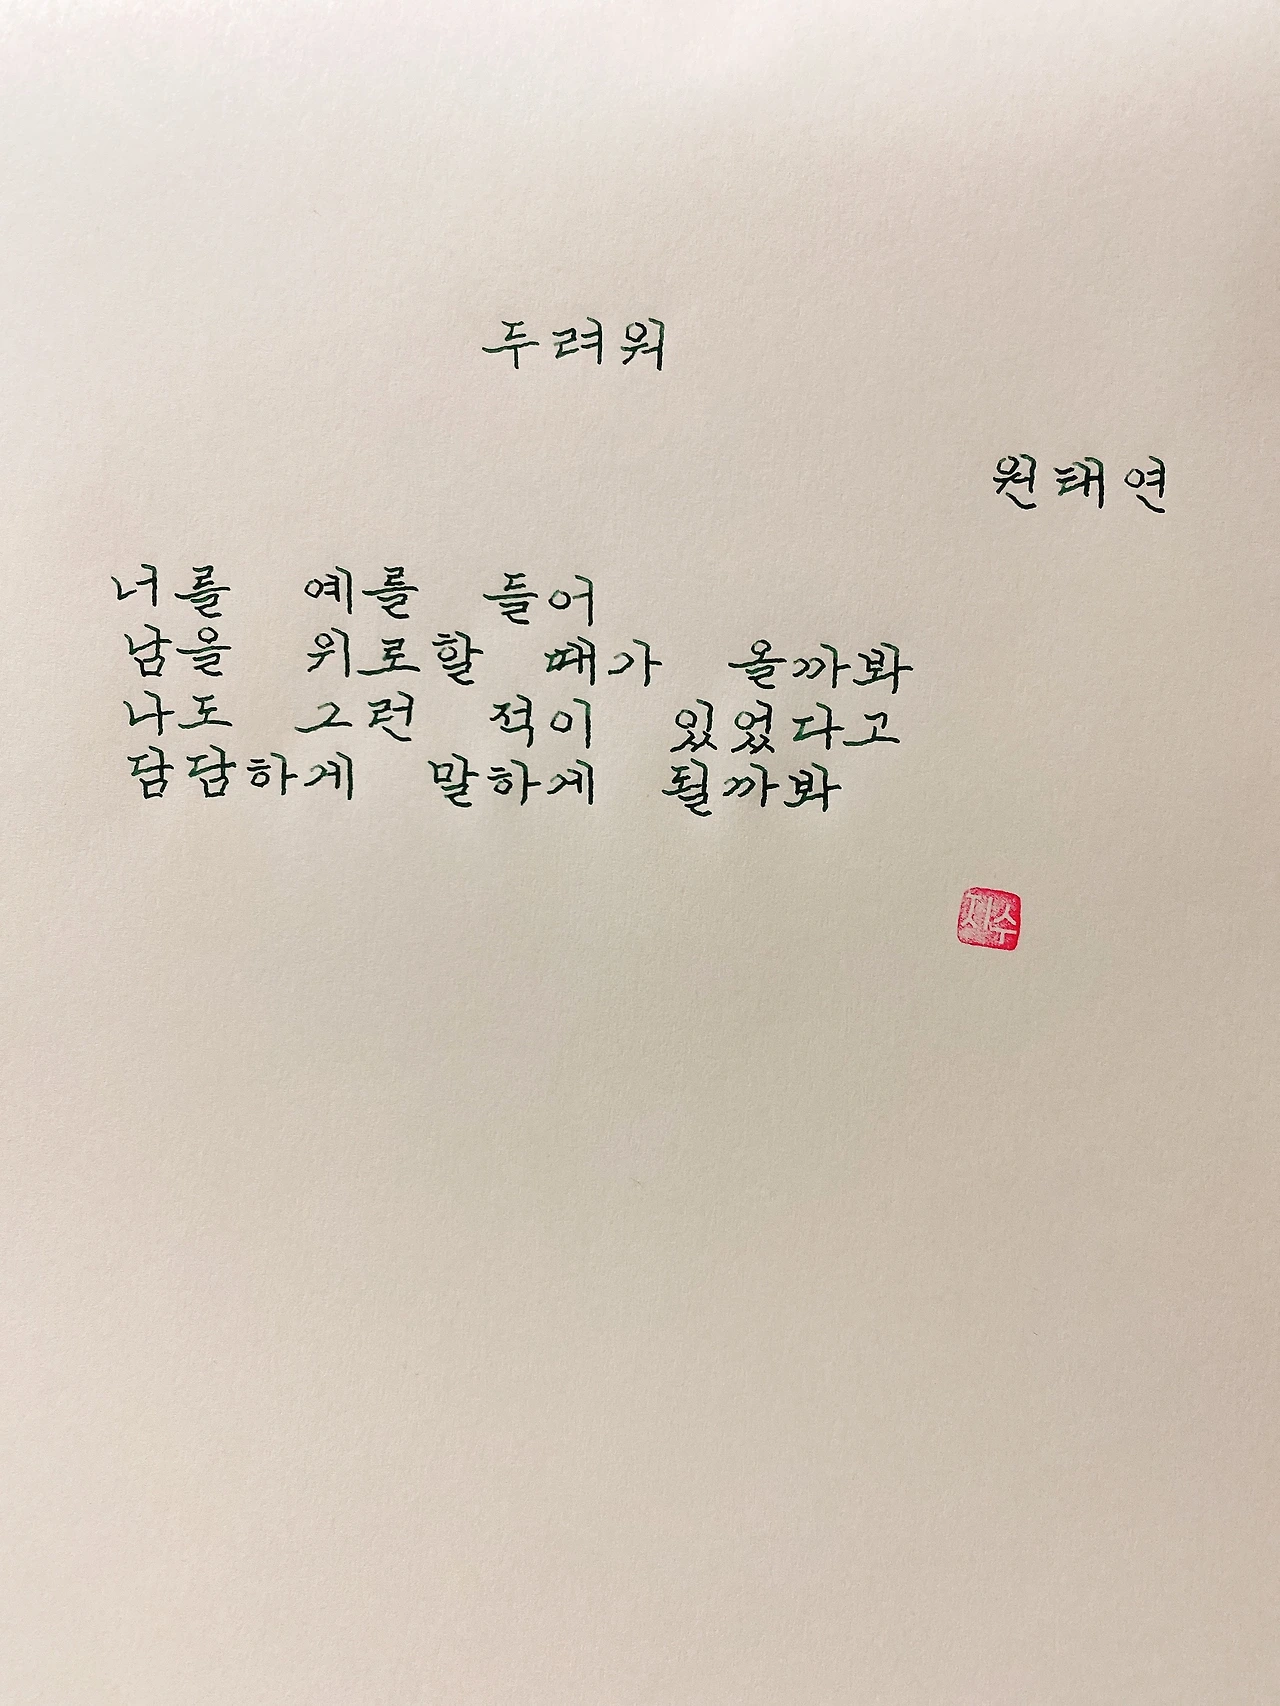 두려워
원태연
너를 예를 들어
남을 위로할 때가 올까봐
나도 그런 적이 있었다고
담담하게 말하게 될까봐